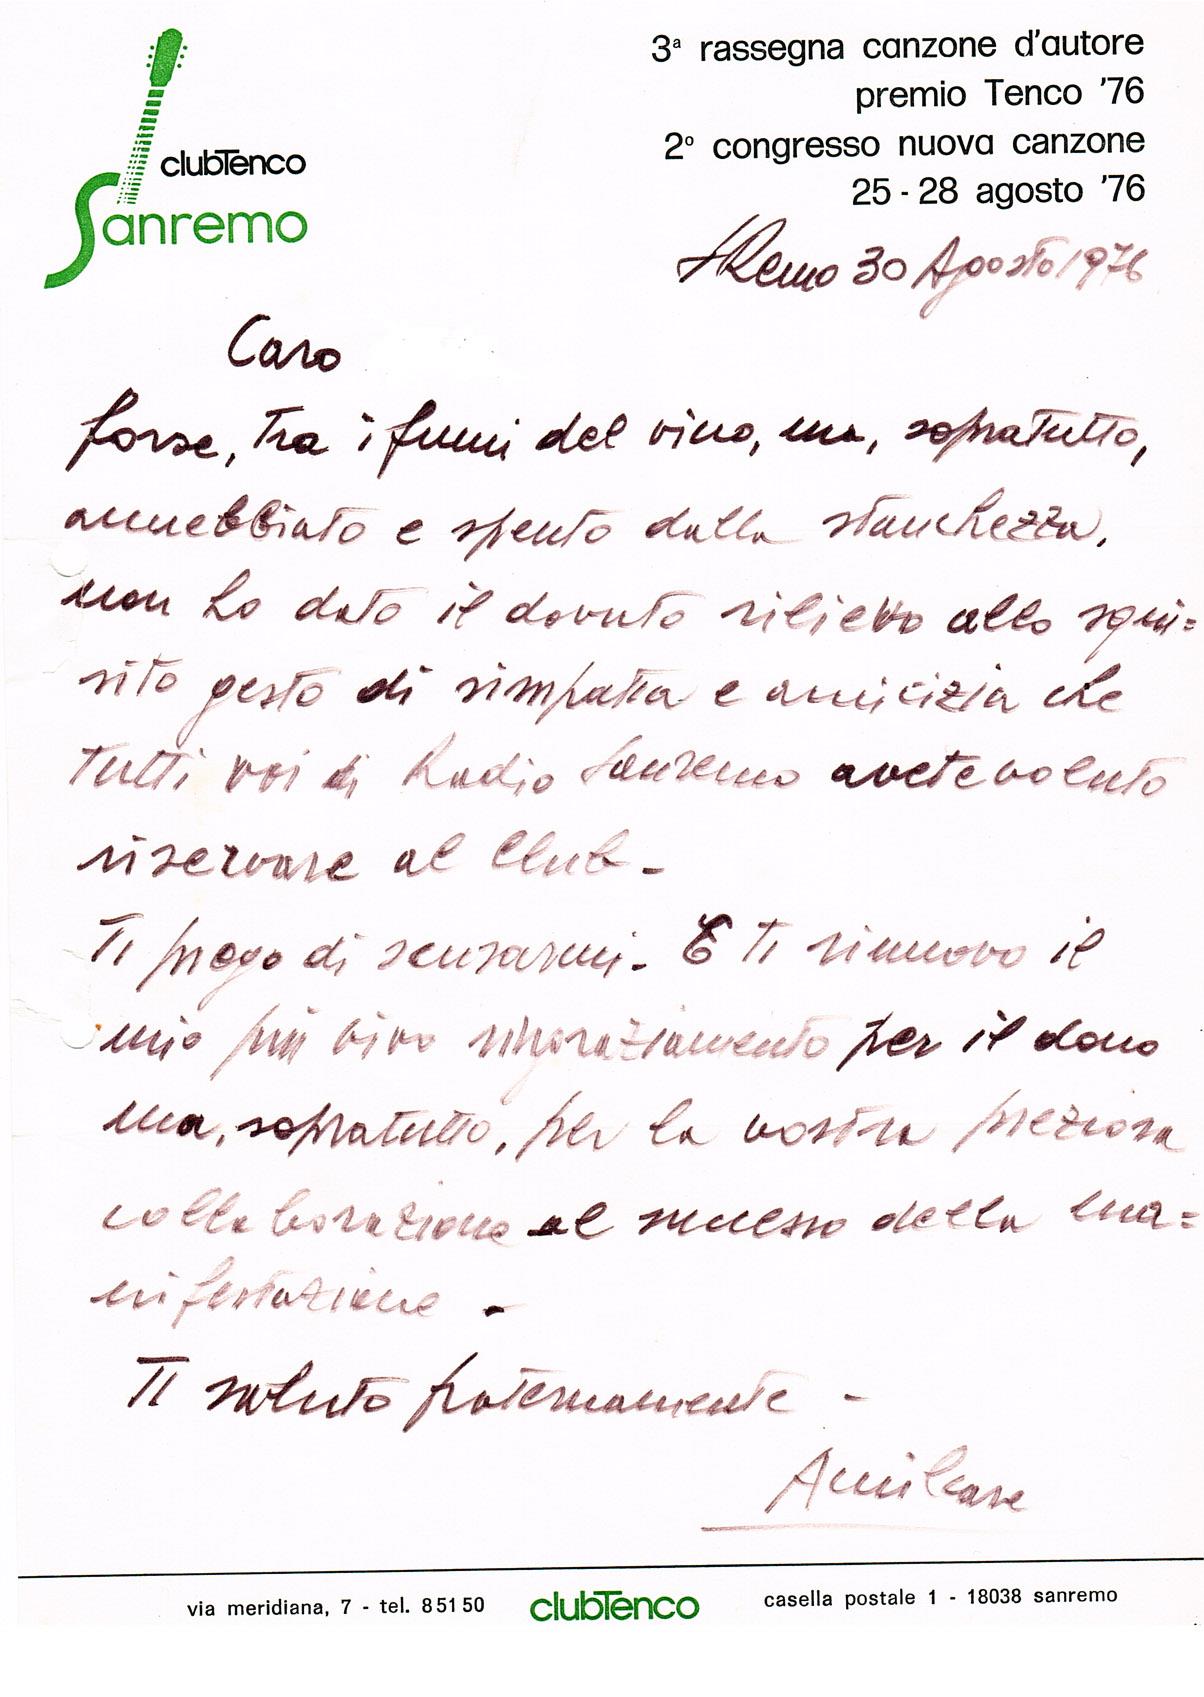 clubTenco
Sanremo
3ª rassegna canzone d'autore
premio Tenco '76
2º congresso nuova canzone
25 - 28 agosto '76
SRemo 30 Agosto 1976
Caro
forse, tra i fumi del vino, ma, sopratutto,
annebbiato e spento dalla stanchezza,
non ho dato il dovuto rilievo allo squi=
sito gesto di simpatia e amicizia che
tutti voi di Radio Sanremo avete voluto
riservare al Club -
Ti prego di scusarmi - E ti rinnovo il
mio più vivo ringraziamento per il dono
ma, sopratutto, per la vostra preziosa
collaborazione al successo della ma=
nifestazione -
Ti saluto fraternamente -
Amilcare
via meridiana, 7 - tel. 85150
clubTenco
casella postale 1 - 18038 sanremo